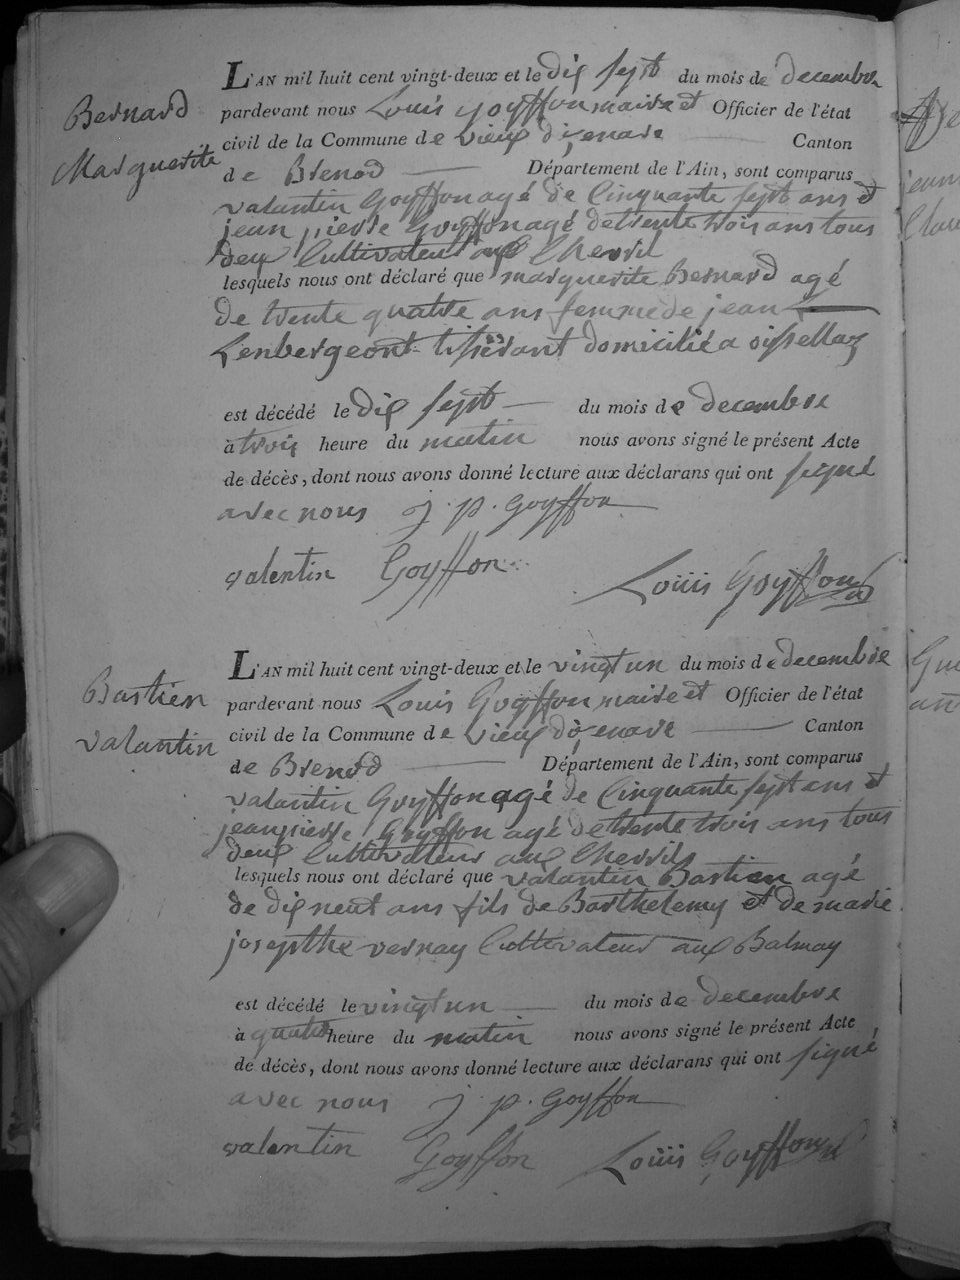 Bernard
Marguerite
L'AN mil huit cent vingt-deux et le dix sept du mois de decembre
pardevant nous Louis goyffon maire et Officier de l'état
civil de la Commune de vieux dizenave Canton
de Brenod Département de l'Ain, sont comparus
valantin Goyffon agé de Cinquante sept ans et
jean pierre Goyffon agé de trente trois ans tous
deux Cultivateur aux Cherril
lesquels nous ont déclaré que marguerite Bernard agé
de trente quatre ans femme de jean
Lenbergeont tisserant domicilié a
est décédé le dix sept du mois de decembre
à trois heure du matin nous avons signé le présent Acte
de décès, dont nous avons donné lecture aux déclarans qui ont signé
avec nous j. p. Goyffon
valentin Goyffon
Louis Goyffon
Bastien
valantin
L'AN mil huit cent vingt-deux et le vingt un du mois de decembre
pardevant nous Louis Goyffon maire et Officier de l'état
civil de la Commune de vieux dizenave Canton
de Brenod Département de l'Ain, sont comparus
valantin Goyffon agé de Cinquante sept ans et
jean pierre Goyffon agé de trente trois ans tous
deux Cultivateur aux Cherrils
lesquels nous ont déclaré que valantin Bastien agé
de dix neuf ans fils de Barthelemy et de marie
josepthe vernay Cultivateur aux Balmay
est décédé le vingt un du mois de decembre
à quatre heure du matin nous avons signé le présent Acte
de décès, dont nous avons donné lecture aux déclarans qui ont signé
avec nous j. p. Goyffon
valentin Goyffon Louis Goyffon